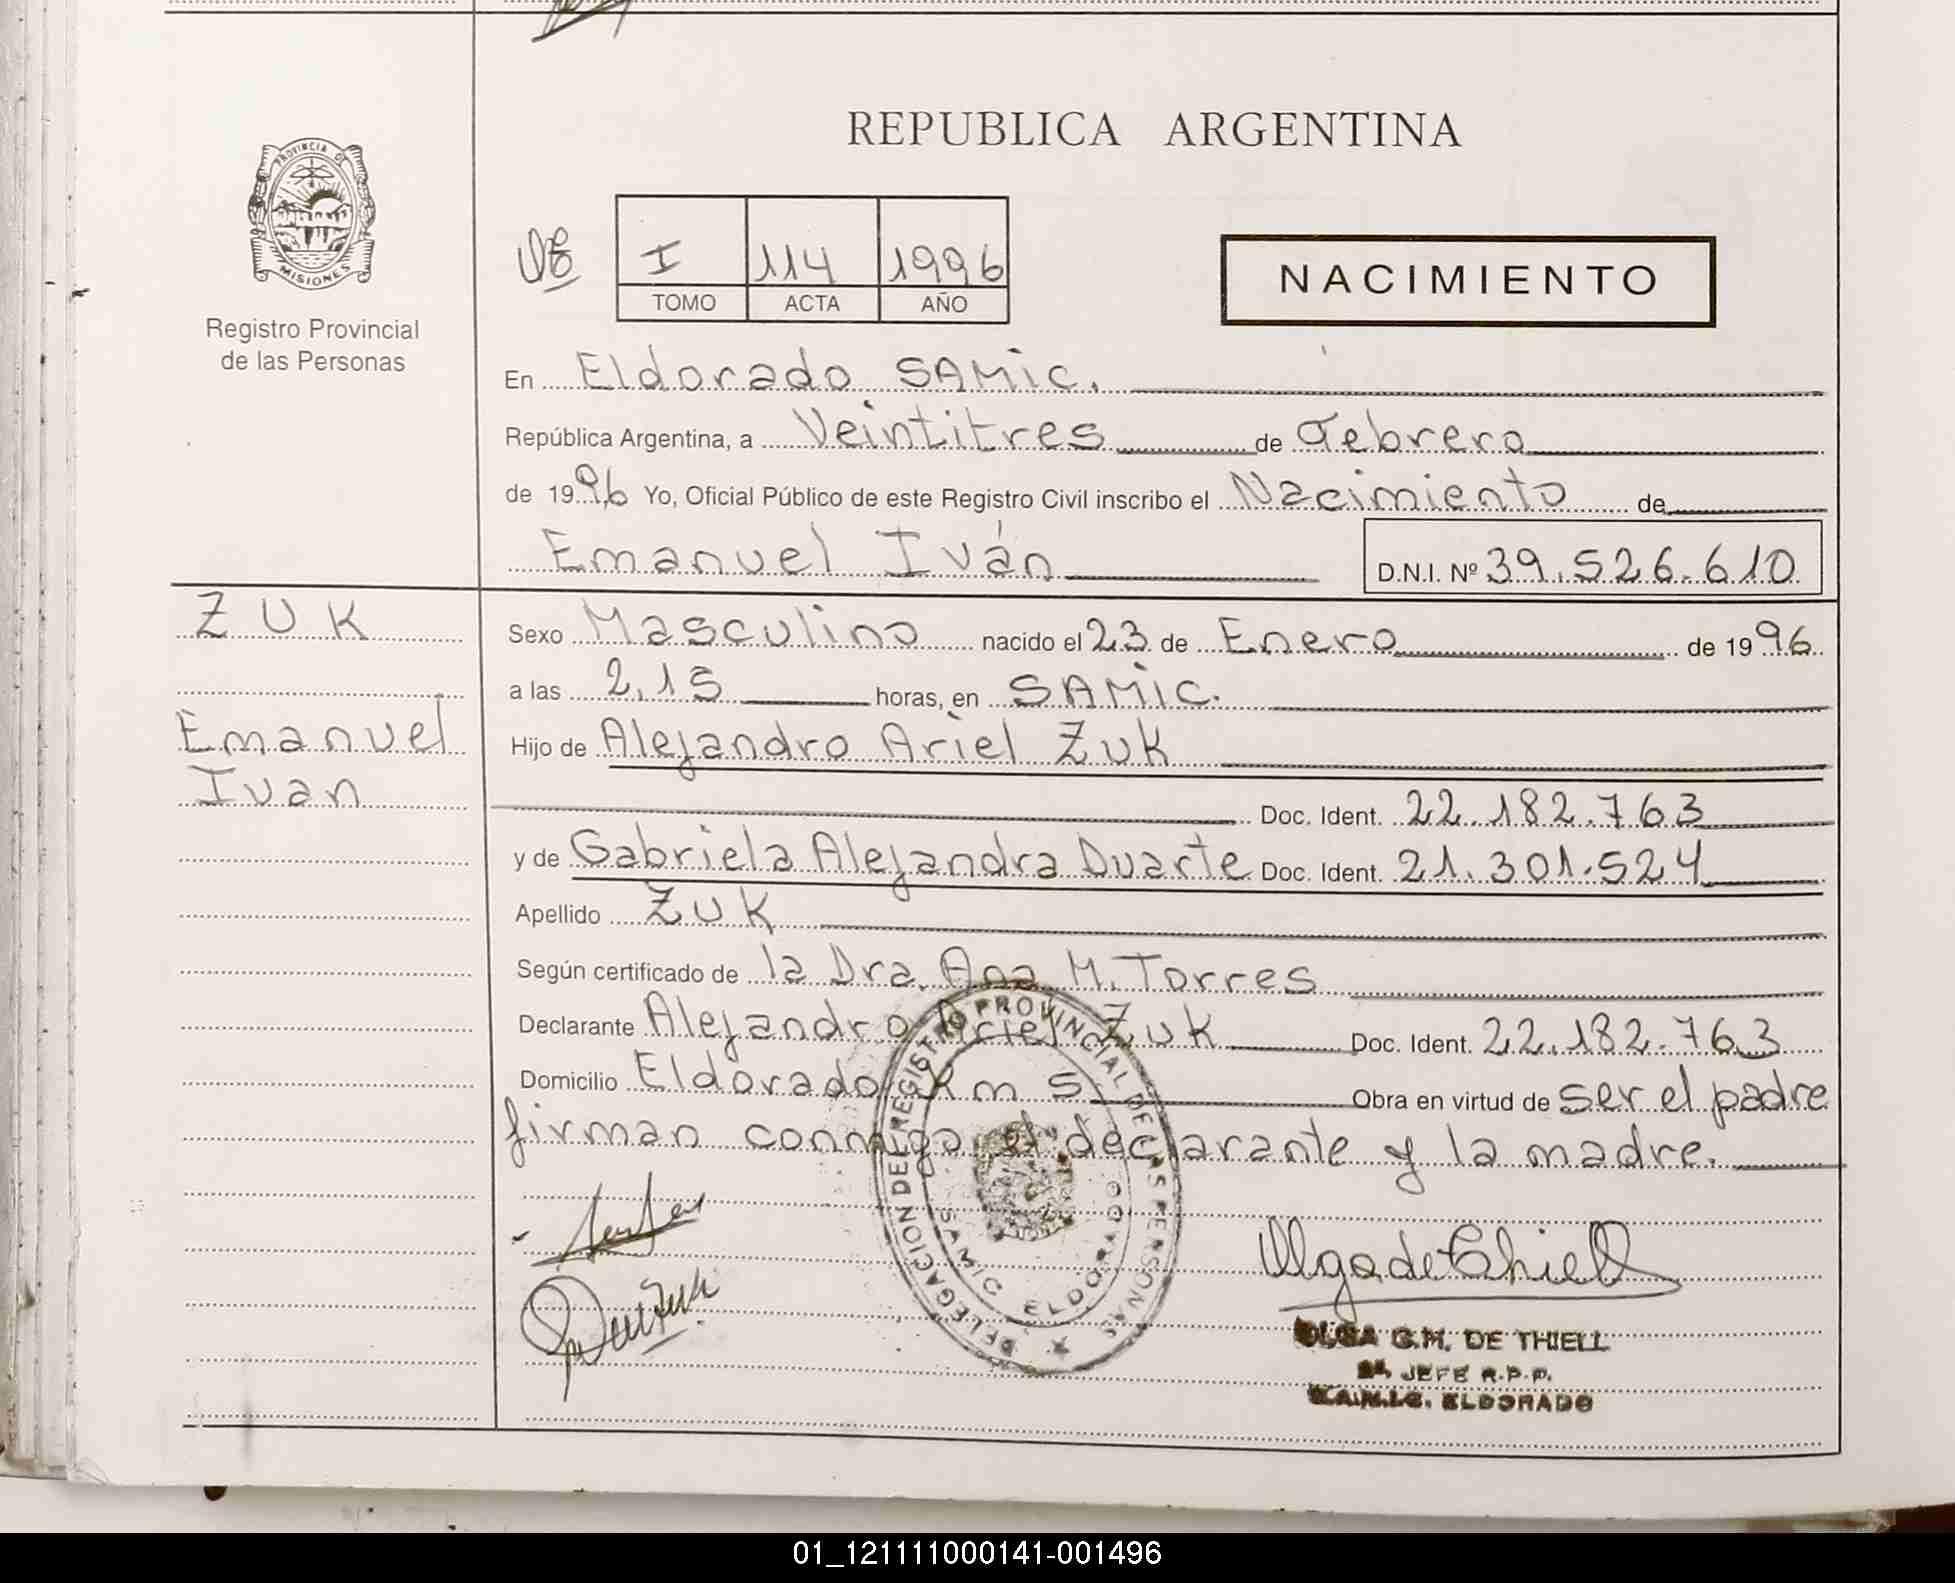 REPUBLICA ARGENTINA
PROVINCIA DE
MISIONES
Registro Provincial
de las Personas
I 114 1996
TOMO ACTA AÑO
NACIMIENTO
En Eldorado SAMIC.
República Argentina, a Veintitres de Febrero
de 1996 Yo, Oficial Público de este Registro Civil inscribo el Nacimiento de
Emanuel Iván D.N.I. Nº 39.526.610
ZUK
Emanuel
Ivan
Sexo Masculino nacido el 23 de Enero de 1996
a las 2,15 horas, en SAMIC.
Hijo de Alejandro Ariel Zuk
Doc. Ident. 22.182.763
y de Gabriela Alejandra Duarte Doc. Ident. 21.301.524
Apellido Zuk
Según certificado de la Dra. Ana M. Torres
Declarante Alejandro Ariel Zuk Doc. Ident. 22.182.763
Domicilio Eldorado Km 5 Obra en virtud de ser el padre
firman conmigo el declarante y la madre.
DELEGACION DEL REGISTRO PROVINCIAL DE LAS PERSONAS
SAMIC ELDORADO
Olga de Thiell
OLGA G.M. DE THIELL
JEFE R.P.P.
S.A.M.I.C. ELDORADO
01_121111000141-001496